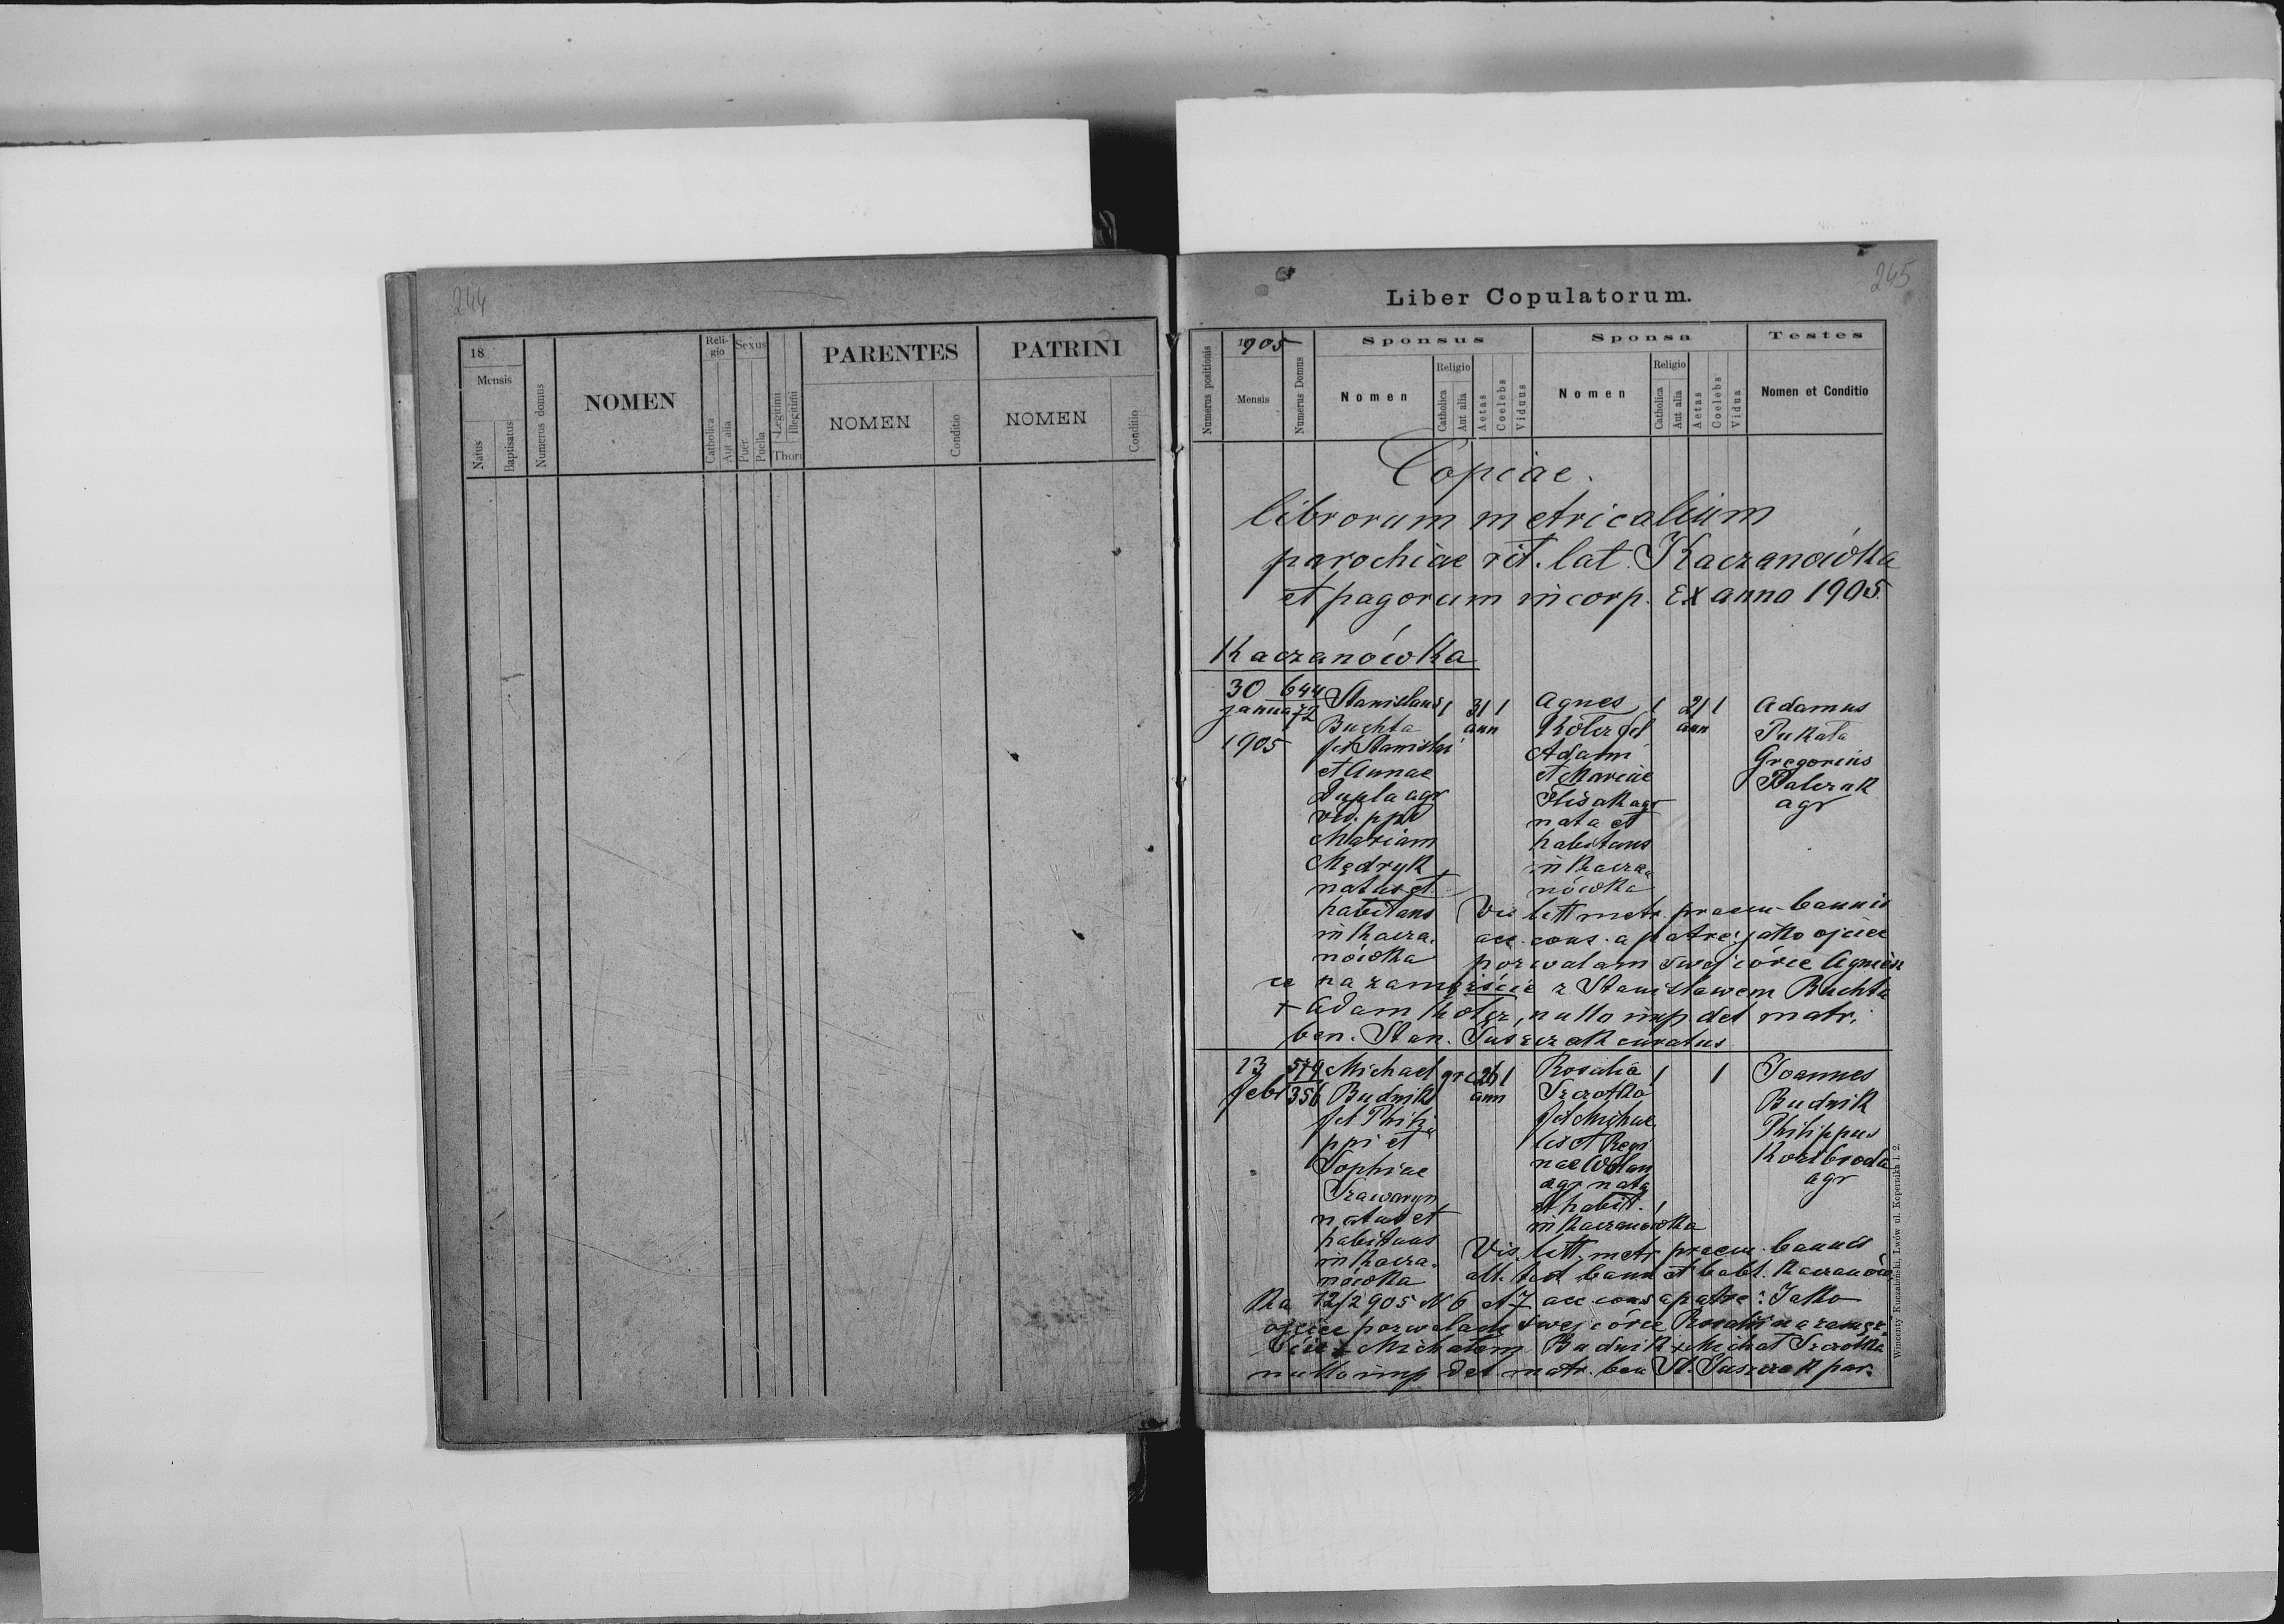 244
18
Mensis
Natus
Baptisatus
Numerus domus
NOMEN
Reli-
gio
Catholica
Aut alia
Sexus
Puer
Puella
Legitimi
Illegitimi
Thori
PARENTES
NOMEN
Conditio
PATRINI
NOMEN
Conditio
245
Liber Copulatorum.
Numerus positionis
1905
Mensis
Numerus Domus
Sponsus
Nomen
Religio
Catholica
Aut alia
Aetas
Coelebs
Viduus
Sponsa
Nomen
Religio
Catholica
Aut alia
Aetas
Coelebs
Vidua
Testes
Nomen et Conditio
Copiae.
librorum metricalium
parochiae rit. lat. Kaczanówka
et pagorum incorp. ex anno 1905.
Kaczanówka
30 644 Stanislaus 1 31 1 Agnes 1 21 1 Adamus
janua 72 Buchta ann ann Pukała
1905 fil Stanislai Adami Gregorius
et Annae et Mariae Balczak
Dupla agr Flisak agr agr
vid. ppr nata et
Mariam habitans
Mędryk in Kacza
natus et nówka
habitans Vis litt metr. praem. bannis
in Kacza. acc. cons. a patre: jako ojciec
nówka pozwalam swej córce Agniesz
ce na zamęźście z Stanisławem Buchta
+ Adam nullo imp. det matr.
ben. Stan. curatus
13 579 Michael gr c 26 1 Rosalia 1 1 Joannes
febr 356 Budnik ann Szczotka Budnik
fil Phili fil Michae Philippus
ppi et lis et Regi Kozibroda
Sophiae nae Wolan agr
Szawaryn agr nata
natus et et habit.
habitans in Kaczanówka
in Kacza. Vis. litt. metr praem. bannis
nówka att. test bann et bapt. Kaczanów
ka 12/2 905 N 6 et 7 acc cons a patre: Jako
ojciec pozwalam swej córce Rosalii na zamęź
ście z Michałem Budnik + Michał Szczotka
nullo imp det matr. ben St. par.
Wincenty Kuczabiński, Lwów ul. Kopernika l. 2.